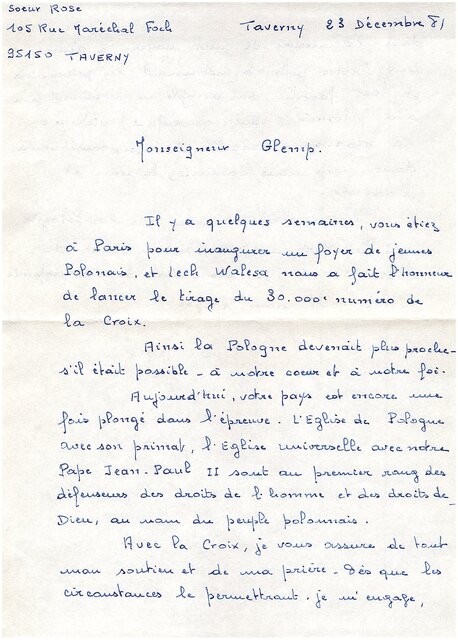 Soeur Rose
105 Rue Maréchal Foch
95150 TAVERNY
Taverny 23 Décembre 81
Monseigneur Glemp.
Il y a quelques semaines, vous étiez
à Paris pour inaugurer un foyer de jeunes
Polonais, et Lech Walesa nous a fait l'honneur
de lancer le tirage du 30.000e numéro de
la Croix.
Ainsi la Pologne devenait plus proche -
s'il était possible - à notre coeur et à notre foi.
Aujourd'hui, votre pays est encore une
fois plongé dans l'épreuve. L'Eglise de Pologne
avec son primat, l'Eglise universelle avec notre
Pape Jean-Paul II sont au premier rang des
défenseurs des droits de l'homme et des droits de
Dieu, au nom du peuple polonais.
Avec la Croix, je vous assure de tout
mon soutien et de ma prière. Dès que les
circonstances le permettront, je m'engage,